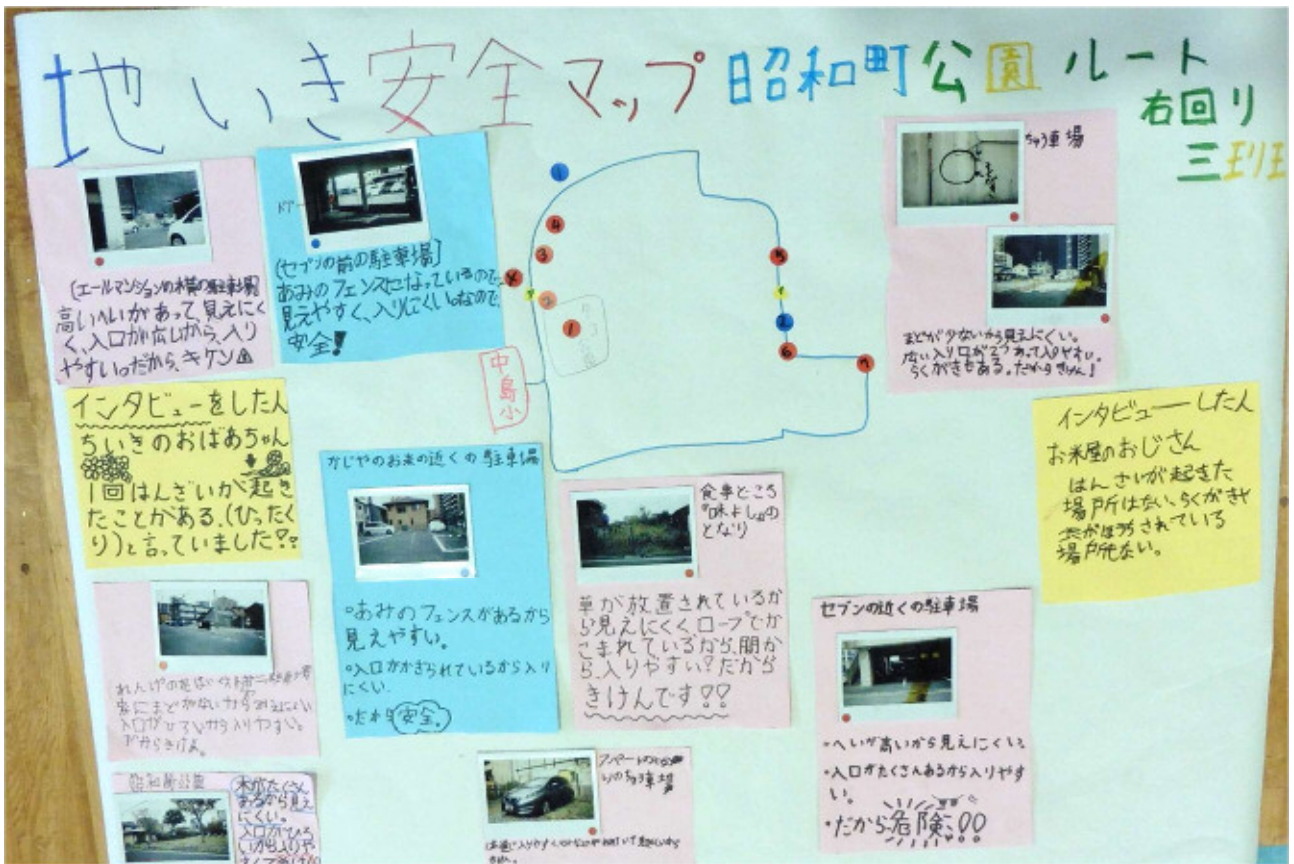 地いき安全マップ昭和町公園ルート
右回り
三班
(エールマンションの横の駐車場)
高いへいがあって、見えにく
く、入口が広しから、入り
やすい。だから、キケン
ドア
(セブンの前の駐車場)
あみのフェンスになっているので、
見えやすく、入りにくい。なので、
安全!
1
4
3
2
1
5
2
6
7
中島小
ちゅう車場
まどが少ないから見えにくい。
広い入り口が2つあって入りやすい。
らくがきもある。だからきけん!
インタビューをした人
ちいきのおばあちゃん
1回はんざいが起き
たことがある。(ひったく
り)と言っていました!!
かじやのお米の近くの駐車場
・あみのフェンスがあるから
見えやすい。
・入口がかぎられているから入り
にくい。
・だから安全。
食事ところ
『味よし』の
となり
草が放置されているか
ら見えにくく、ロープでか
こまれているから、間か
ら、入りやすい?だから
きけんです!!
インタビューした人
お米屋のおじさん
はんざいが起きた
場所はない、らくがきや
がほうちされている
場所もない。
セブンの近くの駐車場
・へいが高いから見えにくい。
・入口がたくさんあるから入りやす
い。
・だから危険!!
れんげの花
家にまどがないから見えにくい
入口がひろいから入りやすい。
だからきけん。
昭和町公園
木がたくさん
あるから見え
にくい。
入口がひろ
いから入りや
アパートの
りのちゅう車場